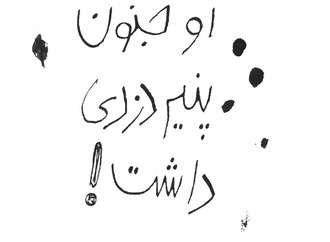 او جنون
پنیر دزدی
داشت!